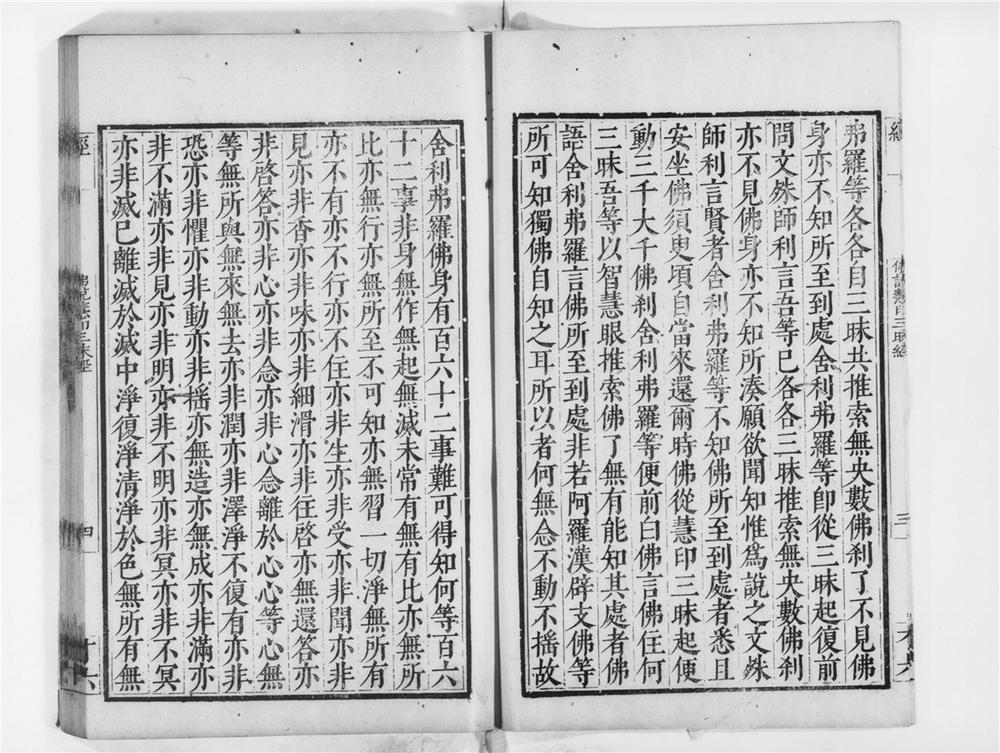 弗羅等各各自三昧共推索無央數佛剎了不見佛
身亦不知所至到處舍利弗羅等即從三昧起復前
問文殊師利言吾等已各各三昧推索無央數佛剎
亦不見佛身亦不知所湊願欲聞知惟爲說之文殊
師利言賢者舍利弗羅等不知佛所至到處者悉且
安坐佛須臾頃自當來還爾時佛從慧印三昧起便
動三千大千佛剎舍利弗羅等便前白佛言佛住何
三昧吾等以智慧眼推索佛了無有能知其處者佛
語舍利弗羅言佛所至到處非若阿羅漢辟支佛等
所可知獨佛自知之耳所以者何無念不動不揺故
舍利弗羅佛身有百六十二事難可得知何等百六
十二事非身無作無起無滅未常有無有比亦無所
比亦無行亦無所至不可知亦無習一切淨無所有
亦不有亦不行亦不住亦非生亦非受亦非聞亦非
見亦非香亦非味亦非細滑亦非往啓亦無還答亦
非啓答亦非心亦非念亦非心念離於心心等心無
等無所與無來無去亦非潤亦非澤淨不復有亦非
恐亦非懼亦非動亦非揺亦無造亦無成亦非滿亦
非不滿亦非見亦非明亦非不明亦非冥亦非不冥
亦非滅已離滅於滅中淨復淨清淨於色無所有無
經
佛說慧印三昧經
四